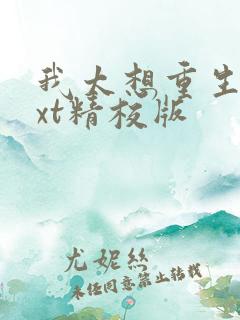 我太想重生
xt精校版
尤妮丝
未经同意禁止转载